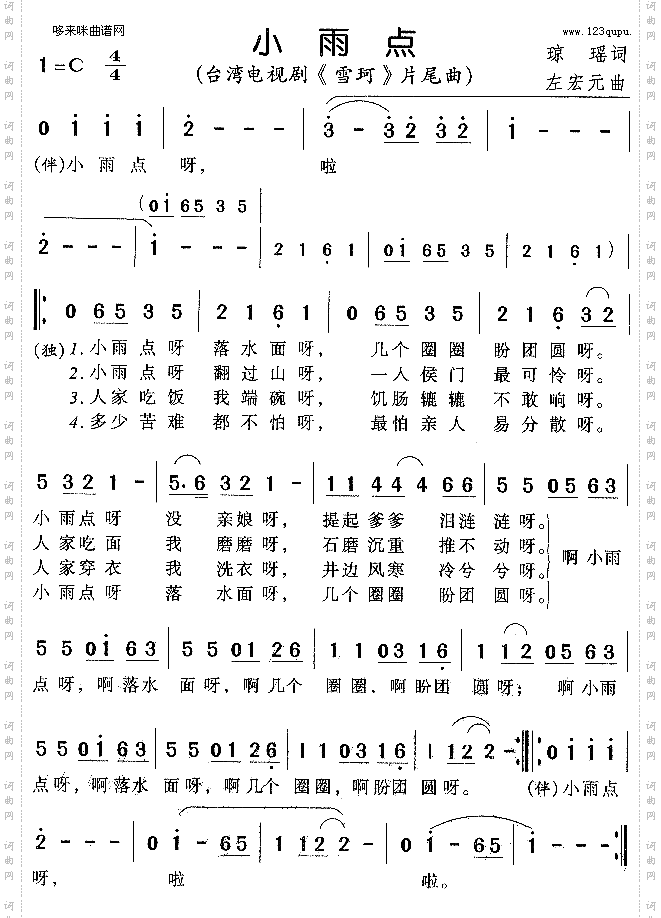 哆来咪曲谱网
www.123qupu.
小雨点
1=C 4/4
(台湾电视剧《雪珂》片尾曲)
琼瑶词
左宏元曲
0 i i i | 2 - - - | 3 - 32 32 | i - - - |
(伴)小雨点 呀， 啦
(0i 65 3 5
2 - - - | i - - - | 2 1 6 1 | 0i 65 3 5 | 2 1 6 1) |
0 65 3 5 | 2 1 6 1 | 0 65 3 5 | 2 1 6 32 |
(独) 1.小雨点呀 落水面呀， 几个圈圈 盼团圆呀。
2.小雨点呀 翻过山呀， 一入侯门 最可怜呀。
3.人家吃饭 我端碗呀， 饥肠辘辘 不敢响呀。
4.多少苦难 都不怕呀， 最怕亲人 易分散呀。
5 32 1 - | 5.6 32 1 - | 11 44 4 66 | 5 5 05 63 |
小雨点呀 没亲娘呀， 提起爹爹 泪涟涟呀。
人家吃面 我磨磨呀， 石磨沉重 推不动呀。
啊小雨
人家穿衣 我洗衣呀， 井边风寒 冷兮兮呀。
小雨点呀 落水面呀， 几个圈圈 盼团圆呀。
5 5 0i 63 | 5 5 01 26 | 1 1 03 16 | 1 12 05 63 |
点呀，啊落水 面呀，啊几个 圈圈，啊盼团 圆呀；啊小雨
5 5 0i 63 | 5 5 01 26 | 1 1 03 16 | 1 12 2 - :| 0 i i i |
点呀，啊落水 面呀，啊几个 圈圈，啊盼团 圆呀。 (伴)小雨点
2 - - - | 0 i - 65 | 1 12 2 - | 0 i - 65 | i - - - :|
呀， 啦 啦。
词曲网
词曲网
词曲网
词曲网
词曲网
词曲网
词曲网
词曲网
词曲网
词曲网